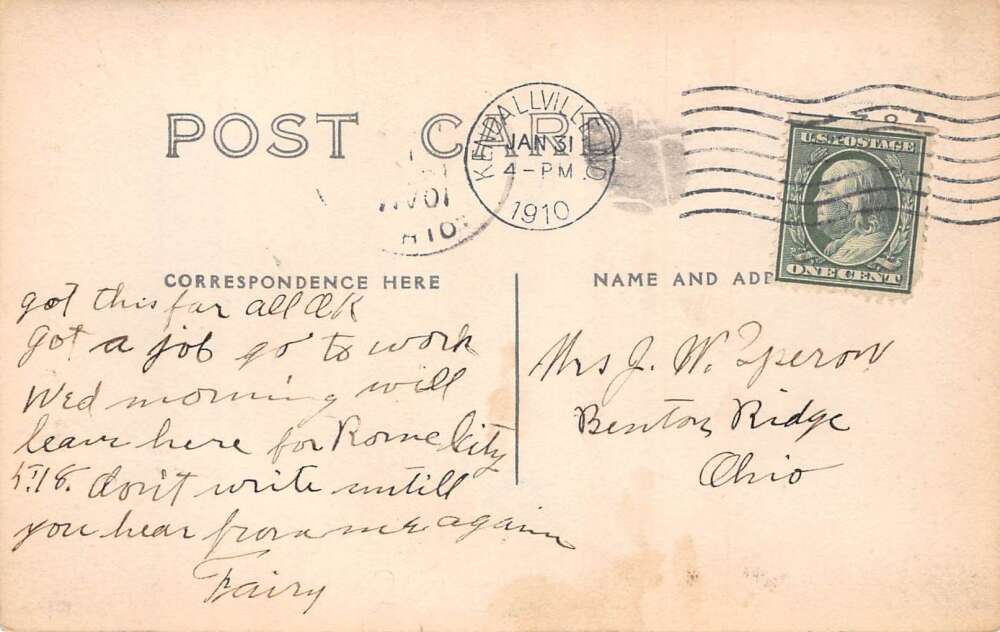 POST CARD
KENDALLVILLE IND
JAN 31
4-PM
1910
U.S. POSTAGE
ONE CENT
CORRESPONDENCE HERE
NAME AND ADD
got this far all OK
got a job go to work
Wed morning will
leave here for Rome City
5:18. don't write untill
you hear from me again
Fairy
Mrs J. W.
Benton Ridge
Ohio